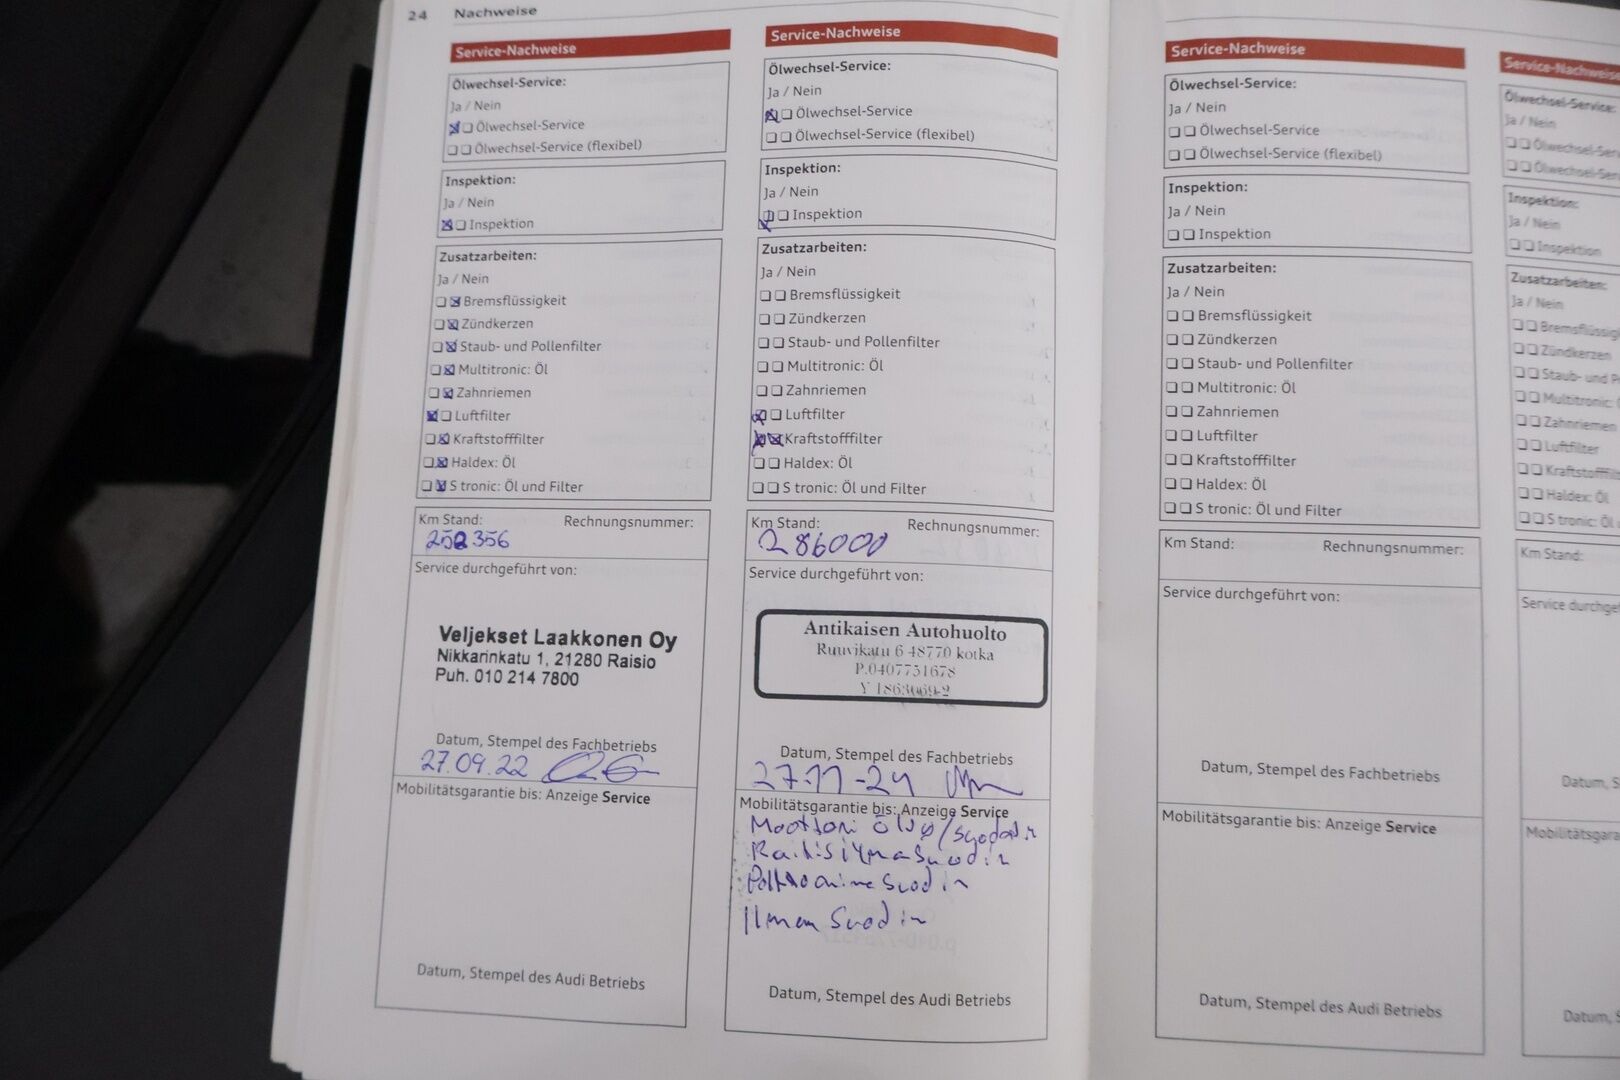 24 Nachweise
Service-Nachweise
Ölwechsel-Service:
Ja / Nein
Ölwechsel-Service
Ölwechsel-Service (flexibel)
Inspektion:
Ja / Nein
Inspektion
Zusatzarbeiten:
Ja / Nein
Bremsflüssigkeit
Zündkerzen
Staub- und Pollenfilter
Multitronic: Öl
Zahnriemen
Luftfilter
Kraftstofffilter
Haldex: Öl
S tronic: Öl und Filter
Km Stand: Rechnungsnummer:
252356
Service durchgeführt von:
Veljekset Laakkonen Oy
Nikkarinkatu 1, 21280 Raisio
Puh. 010 214 7800
Datum, Stempel des Fachbetriebs
27.09.22
Mobilitätsgarantie bis: Anzeige Service
Datum, Stempel des Audi Betriebs
Service-Nachweise
Ölwechsel-Service:
Ja / Nein
Ölwechsel-Service
Ölwechsel-Service (flexibel)
Inspektion:
Ja / Nein
Inspektion
Zusatzarbeiten:
Ja / Nein
Bremsflüssigkeit
Zündkerzen
Staub- und Pollenfilter
Multitronic: Öl
Zahnriemen
Luftfilter
Kraftstofffilter
Haldex: Öl
S tronic: Öl und Filter
Km Stand: Rechnungsnummer:
286000
Service durchgeführt von:
Antikaisen Autohuolto
Ruuvikatu 6 48770 kotka
P.0407751678
Y 1863069-2
Datum, Stempel des Fachbetriebs
27-11-24
Mobilitätsgarantie bis: Anzeige Service
Moottori
Raitisilmasuodin
Polttoainesuodin
Ilmansuodin
Datum, Stempel des Audi Betriebs
Service-Nachweise
Ölwechsel-Service:
Ja / Nein
Ölwechsel-Service
Ölwechsel-Service (flexibel)
Inspektion:
Ja / Nein
Inspektion
Zusatzarbeiten:
Ja / Nein
Bremsflüssigkeit
Zündkerzen
Staub- und Pollenfilter
Multitronic: Öl
Zahnriemen
Luftfilter
Kraftstofffilter
Haldex: Öl
S tronic: Öl und Filter
Km Stand: Rechnungsnummer:
Service durchgeführt von:
Datum, Stempel des Fachbetriebs
Mobilitätsgarantie bis: Anzeige Service
Datum, Stempel des Audi Betriebs
Service-Nachweise
Ölwechsel-Service:
Ja / Nein
Ölwechsel-Ser
Ölwechsel-Ser
Inspektion:
Ja / Nein
Inspektion
Zusatzarbeiten:
Ja / Nein
Bremsflüssig
Zündkerzen
Staub- und P
Multitronic:
Zahnriemen
Luftfilter
Kraftstofffi
Haldex: Öl
S tronic: Öl
Km Stand:
Service durchge
Datum, S
Mobilitätsgara
Datum,